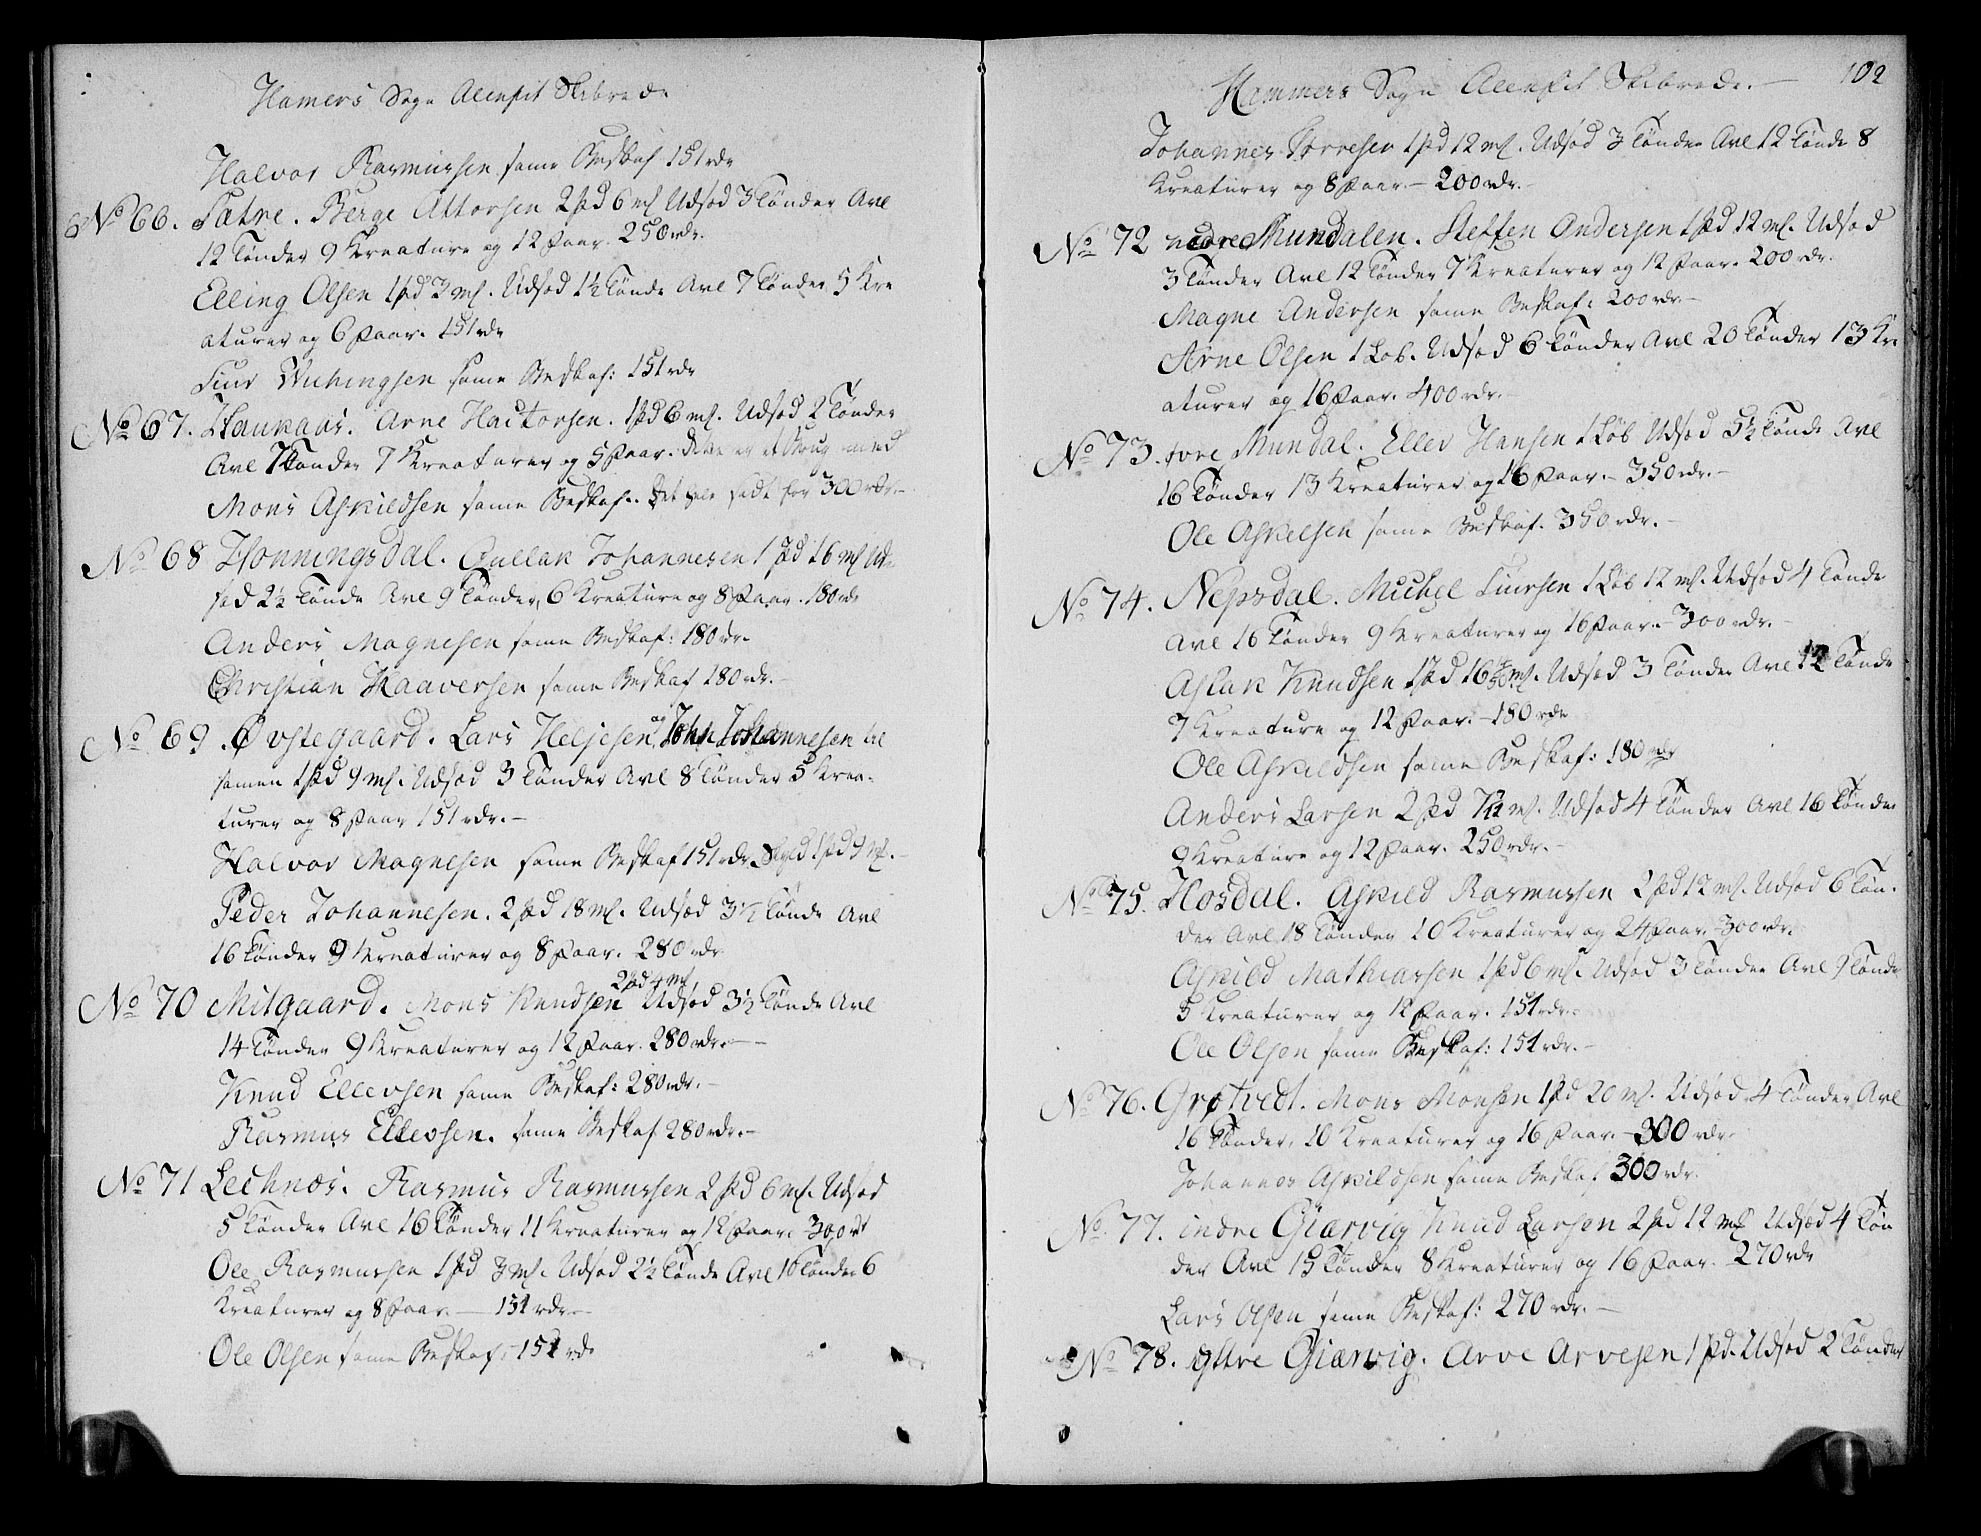 Hamers Sogn Alenfit Skibrede
Halvor Rasmussen same Beskaf 151 rdr
No 66. Sætre. Berge Attorsen 2 pd 6 mk Udsæd 3 Tønder Avl
12 Tønder 9 Kreature og 12 Faar. 250 rdr.
Elling Olsen 1 pd 3 mk. Udsæd 1½ Tønde Avl 7 Tønder 5 Kre
aturer og 6 Faar. 151 rdr
Siur same Beskaf: 151 rdr
No 67. Haukaas. Arne Hactorsen. 1 pd 6 mk. Udsæd 2 Tønder
Avl 7 Tønder 7 Kreaturer og 5 Faar. Dette er et Brug med
Mons Askildsen same Beskaf. Det hele sadt for 300 rdr.
No 68 Honningsdal. Gullak Johannesen 1 pd 16 mk Ud-
sæd 2½ Tønde Avl 9 Tønder, 6 Kreature og 8 Faar. 180 rdr
Anders Magnesen same Beskaf: 180 rdr.
Christian Haaversen same Beskaf 180 rdr.-
No 69. Øvstegaard. Lars Heljesen og John Johannesen til
samen 1 pd 9 mk. Udsæd 3 Tønder Avl 8 Tønder 5 Krea-
turer og 8 Faar 151 rdr.-
Halvor Magnesen same Beskaf 151 rdr. Skyld 1 pd 9 mk.-
Peder Johannesen. 2 pd 18 mk. Udsæd 3½ Tønde Avl
16 Tønder 9 Kreaturer og 8 Faar. 280 rdr
2 pd 4 mk
No 70 Mitgaard. Mons Knudsen Udsæd 3½ Tønde Avl
14 Tønder 9 Kreaturer og 12 Faar. 280 rdr.--
Knud Ellevsen same Beskaf: 280 rdr.-
Rasmus Ellevsen. same Beskaf 280 rdr.-
No 71 Lechnæs. Rasmus Rasmussen 2 pd 6 mk. Udsæd
5 Tønder Avl 16 Tønder 11 Kreaturer og 12 Faar. 300 rdr
Ole Rasmussen 1 pd 3 mk. Udsæd 2½ Tønde Avl 10 Tønder 6
Kreaturer og 8 Faar. - 151 rdr.-
Ole Olsen same Beskaf: 151 rdr
Hammers Sogn Alenfit Skibrede.- 102
Johannes Torresen 1 pd 12 mk. Udsæd 3 Tønder Avl 12 Tønde 8
Kreaturer og 8 Faar.- 200 rdr.-
No 72 nedre Mundalen. Steffen Andersen 1 pd 12 mk. Udsæd
3 Tønder Avl 12 Tønder 7 Kreaturer og 12 Faar. 200 rdr.
Magne Andersen same Beskaf: 200 rdr.-
Arne Olsen 1 Løb. Udsæd 6 Tønder Avl 20 Tønder 13 Kre
aturer og 16 Faar. 400 rdr.-
No 73. øvre Mundal. Ellev Hansen 1 Løb Udsæd 5½ Tønde Avl
16 Tønder 13 Kreaturer og 16 Faar.- 350 rdr.-
Ole Askelsen same Beskaf. 350 rdr.-
No 74. Nepsdal. Michel Siursen 1 Løb 12 mk. Udsæd 4 Tønde
Avl 16 Tønder 9 Kreaturer og 16 Faar.- 300 rdr.-
Aslak Knudsen 1 pd 16 mk. Udsæd 3 Tønder Avl 12 Tønde
7 Kreature og 12 Faar.- 180 rdr
Ole Askildsen same Beskaf: 180 rdr
Anders Larsen 2 pd mk. Udsæd 4 Tønder Avl 16 Tønder
9 Kreature og 12 Faar. 250 rdr.-
No 75. Hosdal. Askild Rasmussen 2 pd 12 mk. Udsæd 6 Tøn-
der Avl 18 Tønder 10 Kreaturer og 24 Faar. 300 rdr.
Askild Mathiassen 1 pd 6 mk. Udsæd 3 Tønder Avl 9 Tønde
5 Kreaturer og 12 Faar. 151 rdr.
Ole Olsen same Beskaf: 151 rdr.-
No 76. Grøtvedt. Mons Monsen 1 pd 20 mk. Udsæd 4 Tønder Avl
16 Tønder, 10 Kreaturer og 16 Faar.- 300 rdr.
Johannes Askildsen same Beskaf 300 rdr.
No 77. indre Giærvig Knud Larsen 2 pd 12 mk Udsæd 4 Tøn
der Avl 15 Tønder 8 Kreaturer og 16 Faar. 270 rdr
Lars Olsen same Beskaf: 270 rdr.-
No 78. yttre Giærvig. Arve Arvesen 1 pd. Udsæd 2 Tønder